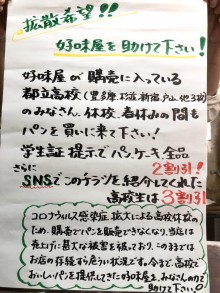 拡散希望!!
好味屋を助けて下さい!
好味屋が購売に入っている
都立高校(豊多摩、杉並、新宿、戸山、他3校)
のみなさん、休校、春休みの間も
パンを買いに来て下さい!
学生証提示でパン、ケーキ全品
2割引!
さらに
SNSでこのチラシを紹介してくれた
高校生は3割引!
コロナウィルス感染症拡大による高校休校の
ため、購売でパンを販売できなくなり、当店は
売上げに甚大な被害を被っており、このままでは
お店の存続すら危うい状況です。今まで、高校で
おいしいパンを提供してきた好味屋を、みなさんの力で
助けて下さい。